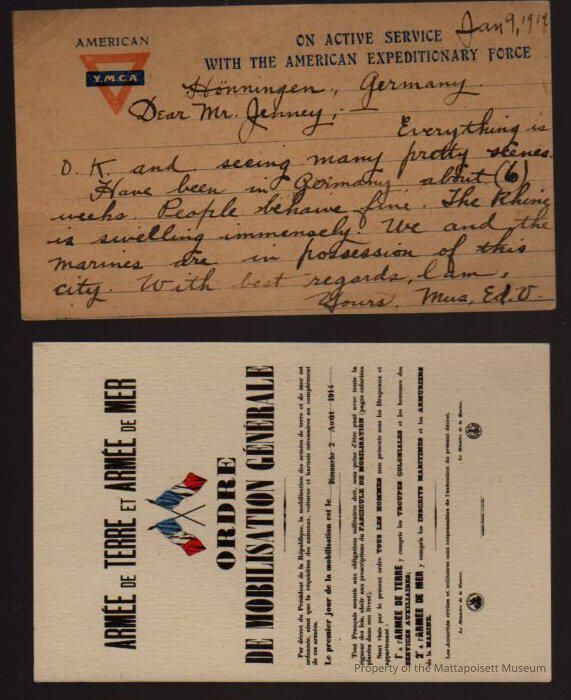 AMERICAN
Y.M.C.A
ON ACTIVE SERVICE
WITH THE AMERICAN EXPEDITIONARY FORCE
Jan 9, 1919
Hönningen, Germany
Dear Mr. Jenney;-
Everything is
O. K and seeing many pretty scenes.
Have been in Germany about (6)
weeks. People behave fine. The Rhine
is swelling immensely. We and the
marines are in possession of this
city. With best regards, I am,
Yours, Mus, Ed. V.
ARMÉE DE TERRE ET ARMÉE DE MER
ORDRE
DE MOBILISATION GÉNÉRALE
Par décret du Président de la République, la mobilisation des armées de terre et de mer est
ordonnée, ainsi que la réquisition des animaux, voitures et harnais nécessaires au complément
de ces armées.
Le premier jour de la mobilisation est le Dimanche 2 Août 1914
Tout Français soumis aux obligations militaires doit, sous peine d'être puni avec toute la
rigueur des lois, obéir aux prescriptions du FASCICULE DE MOBILISATION (pages coloriées
placées dans son livret).
Sont visés par le présent ordre TOUS LES HOMMES non présents sous les Drapeaux et
appartenant :
1° à l'ARMÉE DE TERRE y compris les TROUPES COLONIALES et les hommes des
SERVICES AUXILIAIRES;
2° à l'ARMÉE DE MER y compris les INSCRITS MARITIMES et les ARMURIERS
de la MARINE.
Les Autorités civiles et militaires sont responsables de l'exécution du présent décret.
Le Ministre de la Guerre,
Le Ministre de la Marine,
Property of the Mattapoisett Museum